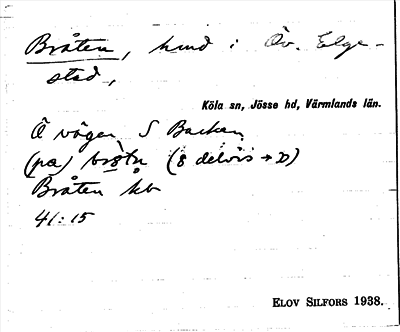 Bråten, hmd i Öv. Elge-
stad,
Köla sn, Jösse hd, Värmlands län.
Ö vägen S Backen
(pa) brötn (8 delvis → D)
Bråten kb
41:15
ELOV SILFORS 1938.